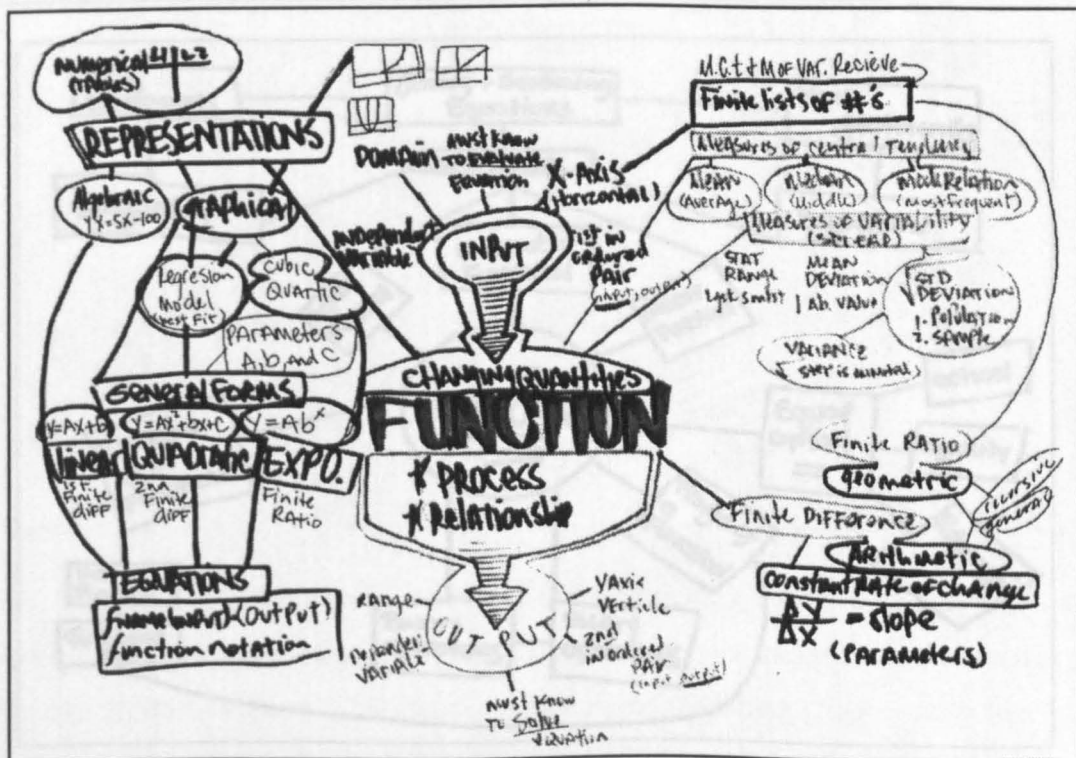 Numerical
(tables)
REPRESENTATIONS
Algebraic
Y=5X-100
Graphical
Regresion
Model
best Fit
Cubic
Quartic
Parameters
A, b, and C
General Forms
y=Ax+b
y=Ax²+bx+c
y=Ab^x
Linear
QUADRATIC
EXPO.
1st
Finite
diff
2nd
Finite
diff
Finite
Ratio
EQUATIONS
(output)
function notation
DOMAIN
must know
to evaluate
equation
X-Axis
(Horizontal)
independent
variable
INPUT
1st in
ordered
Pair
(input, output)
CHANGING QUANTITIES
FUNCTION
* PROCESS
* Relationship
OUTPUT
Range
variable
Yaxis
Verticle
2nd
in ordered
Pair
(input, output)
must know
to Solve
equation
M.C.t + M of VAR. Recieve
Finite lists of #'s
Measures of central Tendency
Mean
(Average)
Median
(Middle)
Mode
(most frequent)
Measures of Variability
STAT
RANGE
MEAN
DEVIATION
Ab. Value
√STD
DEVIATION
1. Population
2. Sample
VARIANCE
√ step is
Finite RATIO
geometric
recursive
general
Finite Difference
Arithmetic
constant Rate of change
ΔY/ΔX = slope
(PARAMETERS)